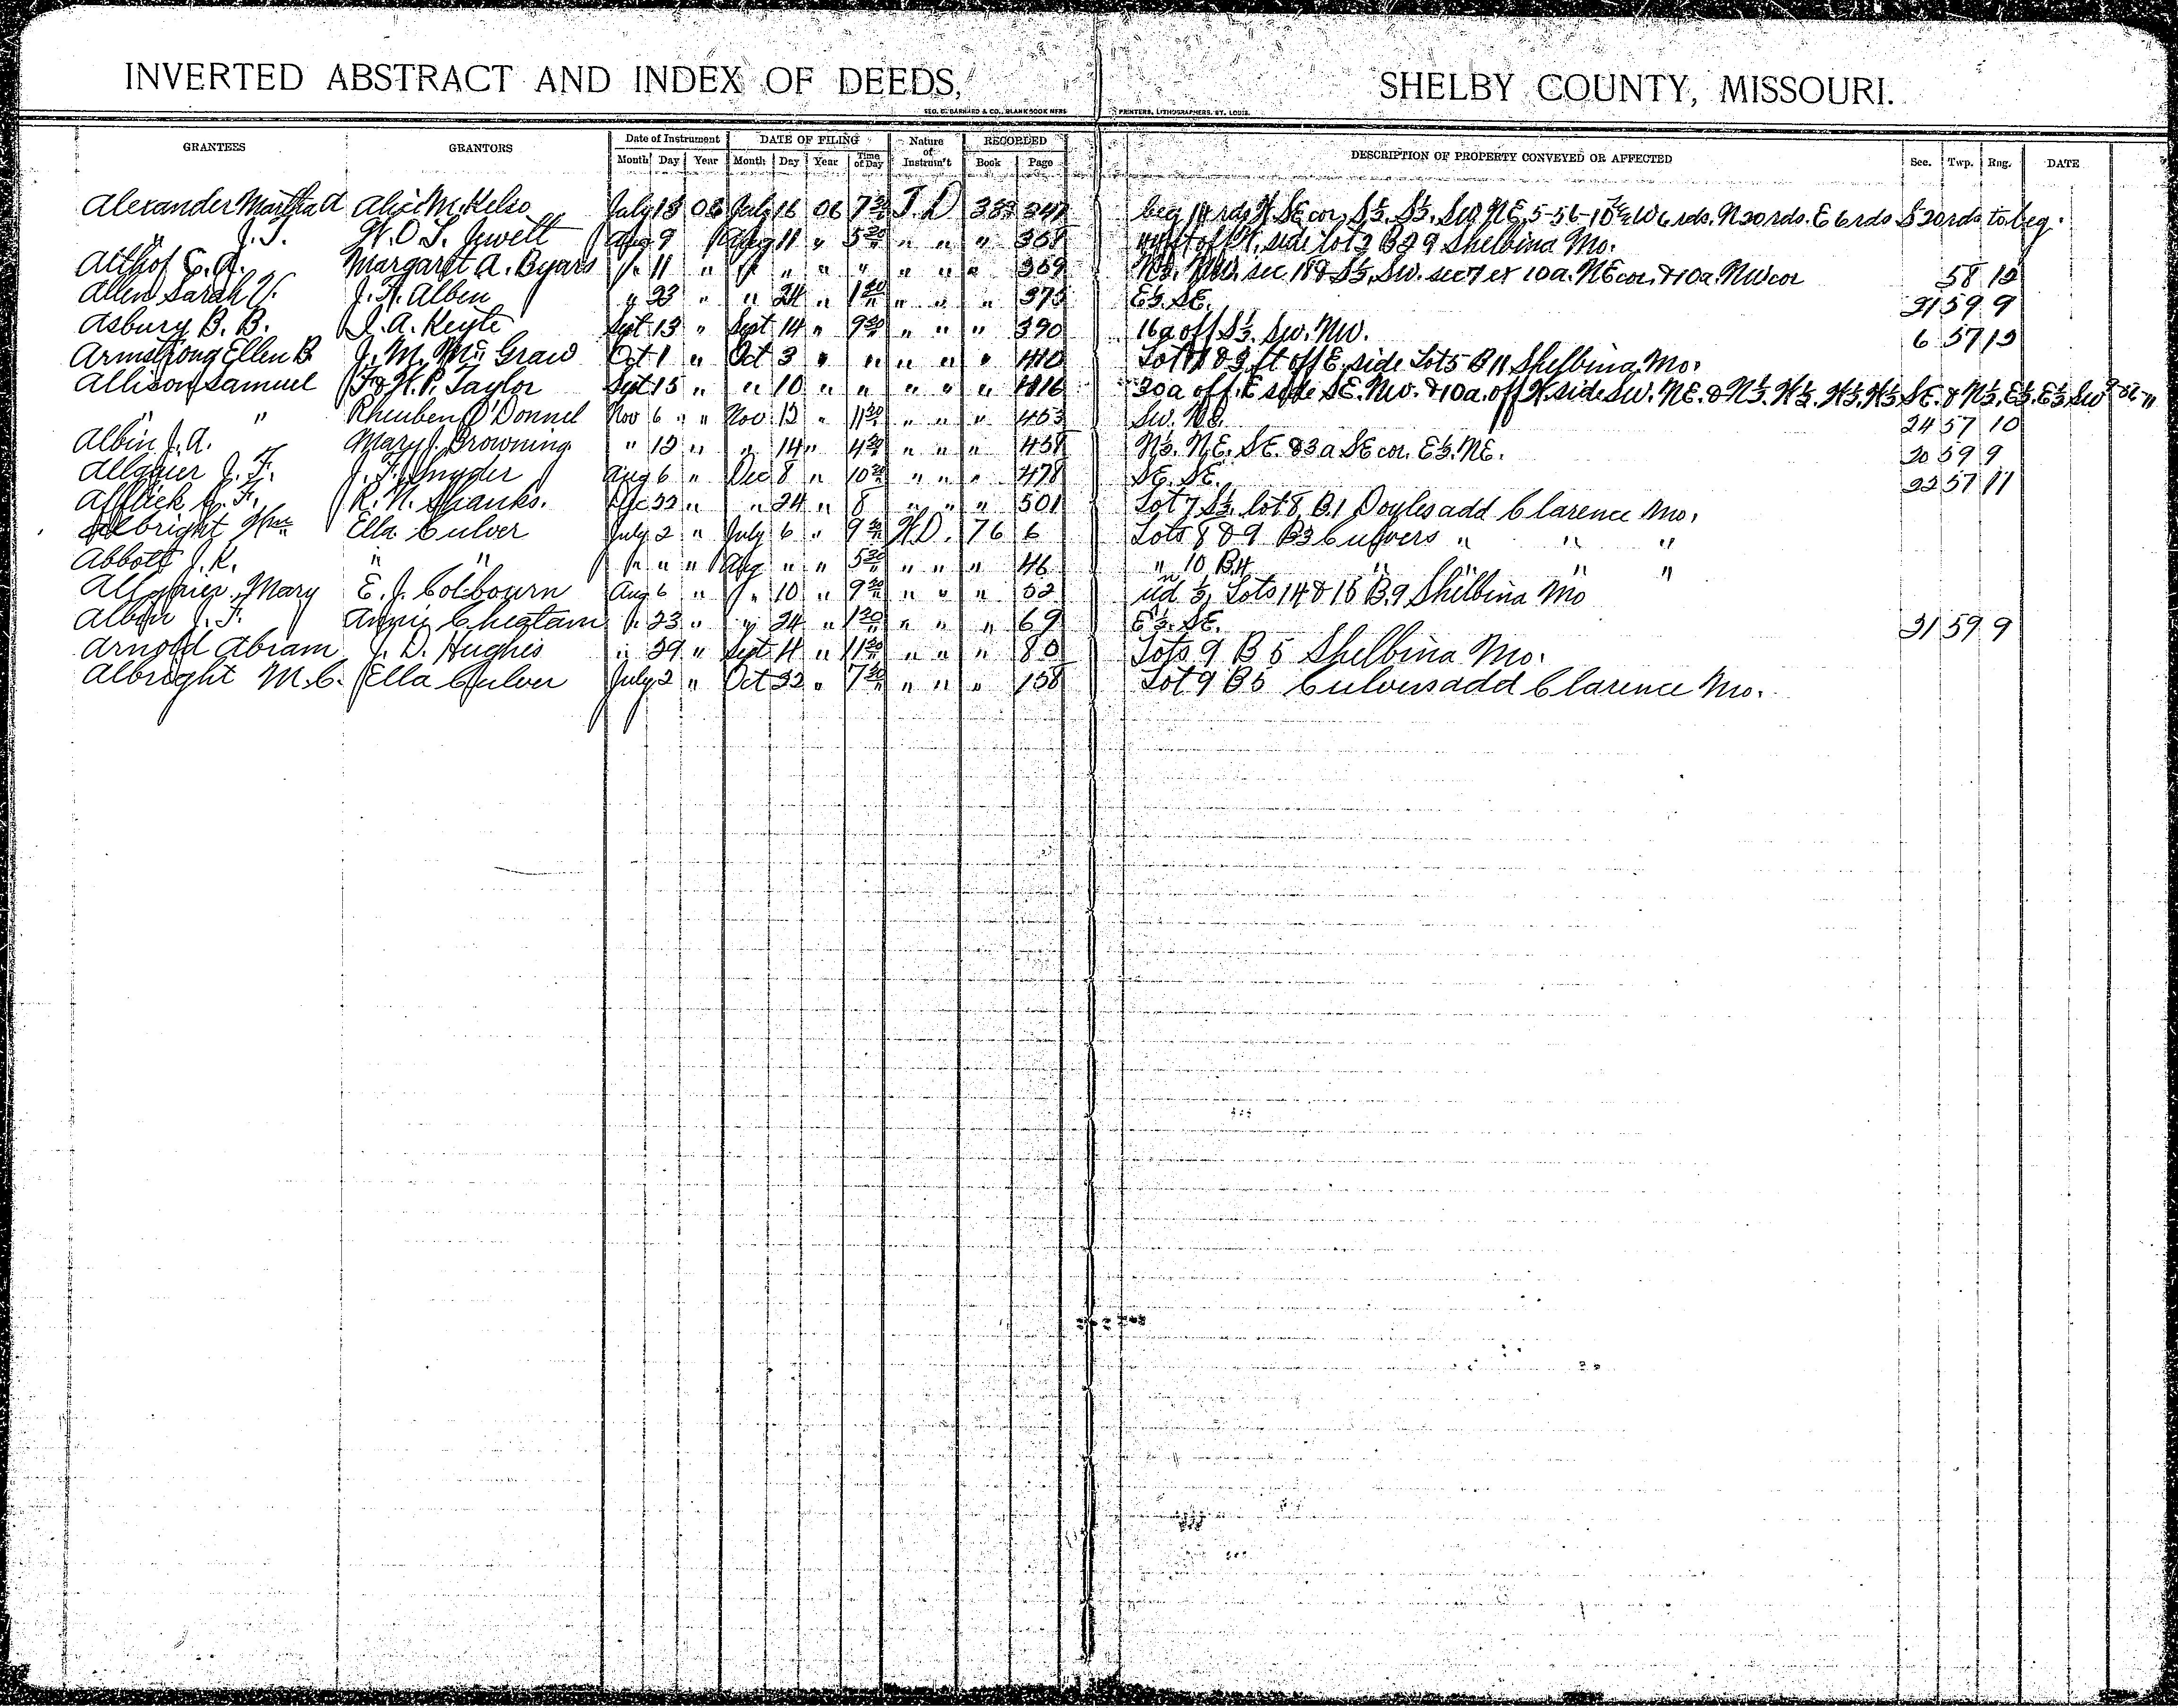 INVERTED ABSTRACT AND INDEX OF DEEDS, SHELBY COUNTY, MISSOURI.
GEO. D. BARNARD & CO., BLANK BOOK MFRS PRINTERS, LITHOGRAPHERS, ST. LOUIS.
GRANTEES GRANTORS Date of Instrument DATE OF FILING Nature of Instrum't RECORDED DESCRIPTION OF PROPERTY CONVEYED OR AFFECTED Sec. Twp. Rng. DATE
Month Day Year Month Day Year Time of Day Book Page
Alexander Martha A Alice M. Kelso July 13 06 July 16 06 7 T. D 347 beg 14 rds W SE cor, S½. S½. SW NE, 5-56-10 W 6 rds. N 20 rds. E 6 rds S 20 rds to beg.
" J. T. W. O. L. Jewett Aug 9 " Aug 11 " 5 30 " " " 368 side lot 2 B 29 Shelbina Mo.
Althof C. A. Margaret A. Byars " 11 " " " " " " " " 369 N½. NW. sec 18 & S½. SW. sec 7 ex 10a. NE cor. & 10a. NW cor 58 12
Allen Sarah V. J. F. Alben " 23 " " 24 " 1 30 " " " 375 E½. SE. 31 59 9
Asbury B. B. I. A. Keyte Sept 13 " Sept 14 " 9 30 " " " 390 16a off S½. SW. NW. 6 57 12
Armstrong Ellen B. J. M. Mc Graw Oct 1 " Oct 3 " " " " " 410 Lot 1 & 3 ft off E. side Lot 5 B 11 Shelbina, Mo.
Allison Samuel W. P. Taylor Sept 15 " " 10 " " " " " 416 30a off E side SE. NW. & 10a. off W side SW. NE. & N½. W½. W½. W½. SE. & N½. E½. E½. SW
" " Rheuben O'Donnel Nov 6 " Nov 12 " 11 30 " " " 453 SW. NE. 24 57 10
Albin J. A. Mary J. Browning " 12 " " 14 " 4 30 " " " 457 N½. NE. SE. & 3 a SE cor. E½. NE. 30 59 9
Allgaier J. F. J. F. Snyder Aug 6 " Dec 8 " 10 30 " " " 478 SE. SE. 22 57 11
Afflick C. F. R. N. Shanks. Dec 22 " " 24 " 8 " " " 501 Lot 7 S½. lot 8, B. 1 Doyles add Clarence Mo.
Albright Wm Ella Culver July 2 " July 6 " 9 30 W. D. 76 6 Lots 8 & 9 B 3 Culvers " " "
Abbott J. K. " " " " " Aug " " 5 30 " " " 46 " 10 B 4 " " "
Allgaier Mary E. J. Colbourn Aug 6 " " 10 " 9 30 " " " 52 ud ½ Lots 14 & 15 B. 9 Shelbina Mo
Albin J. F. Annie Chegtam " 23 " " 24 " 1 30 " " " 69 E½. SE. 31 59 9
Arnold Abram J. D. Hughes " 29 " Sept 4 " 11 30 " " " 80 Lots 9 B 5 Shelbina Mo.
Albright M. C. Ella Culver July 2 " Oct 22 " 7 30 " " " 158 Lot 9 B 5 Culvers add Clarence Mo.